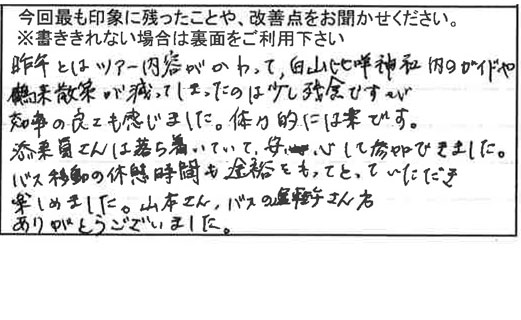 今回最も印象に残ったことや、改善点をお聞かせください。
※書ききれない場合は裏面をご利用下さい
昨年とはツアー内容がかわって、白山比咩神社内のガイドや
鶴来散策が減ってしまったのは少し残念ですが
の良さも感じました。体力的には楽です。
添乗員さんは落ち着いていて、安心して参加できました。
バス移動の休憩時間も余裕をもってとっていただき
楽しめました。山本さん、バスの運転手さん方
ありがとうございました。